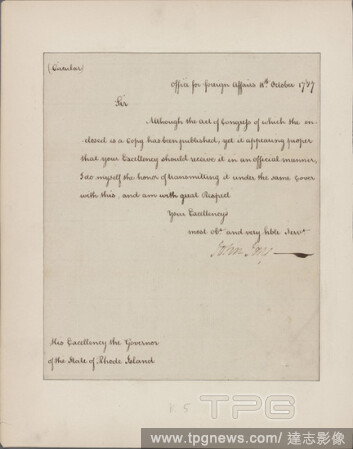 (Circular)
Office for foreign Affairs 11th October 1787
Sir
Although the Act of Congress of which the en-
closed is a Copy has been published, yet it appearing proper
that your Excellency should receive it in an official manner,
I do myself the honor of transmitting it under the same Cover
with this, and am with great Respect
Your Excellency's
most obt. and very hble Servt.
John Jay
His Excellency the Governor
of the State of Rhode Island
5
TPG
www.tpgnews.com / 達志影像